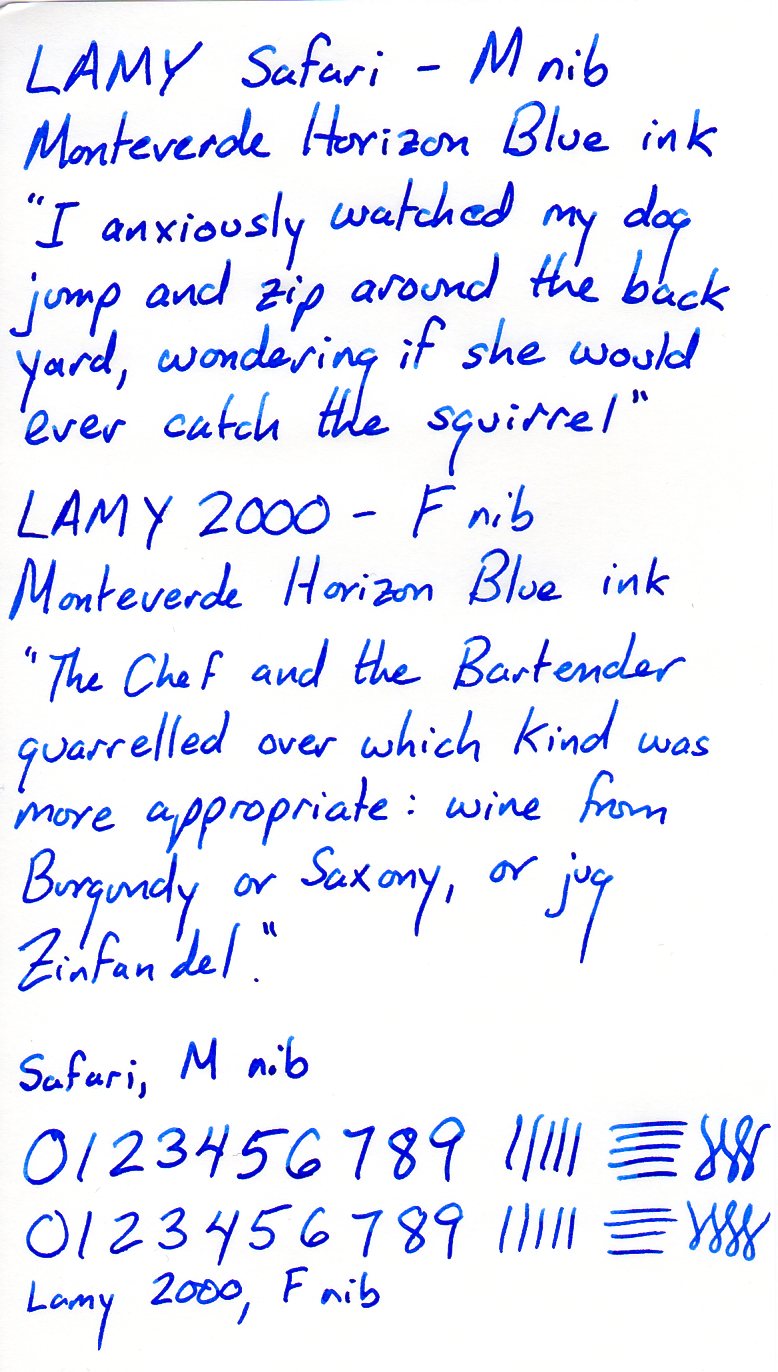 LAMY Safari - M nib
Monteverde Horizon Blue ink
"I anxiously watched my dog
jump and zip around the back
yard, wondering if she would
ever catch the squirrel"
LAMY 2000 - F nib
Monteverde Horizon Blue ink
"The Chef and the Bartender
quarrelled over which kind was
more appropriate: wine from
Burgundy or Saxony, or jug
Zinfandel."
Safari, M nib
0123456789
0123456789
Lamy 2000, F nib